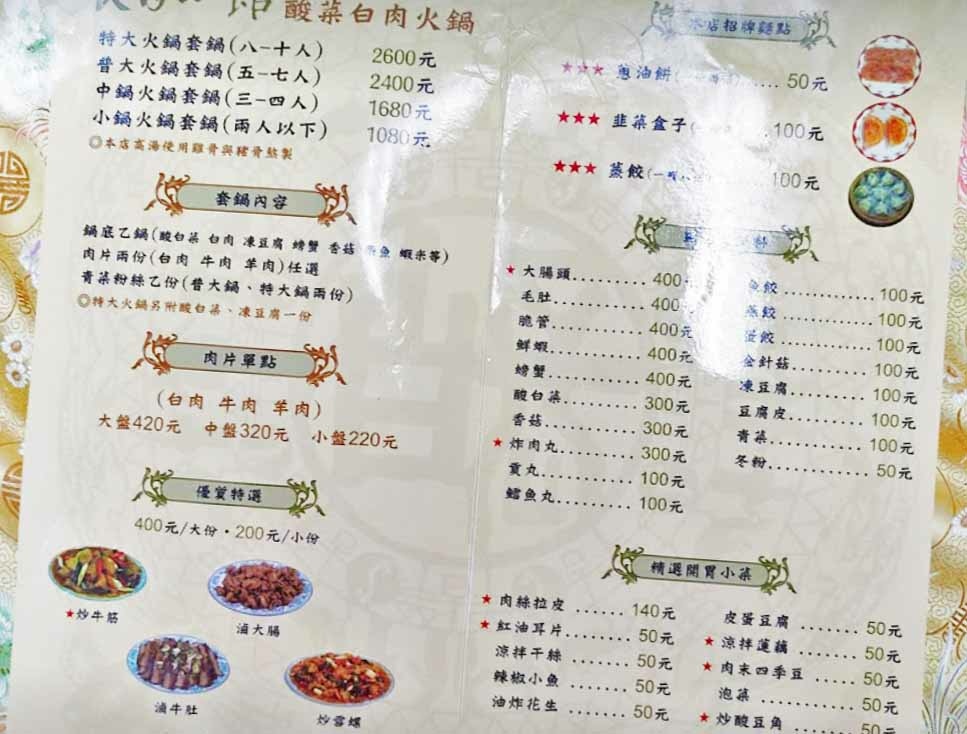 酸菜白肉火鍋
特大火鍋套鍋(八-十人) 2600元
普大火鍋套鍋(五-七人) 2400元
中鍋火鍋套鍋(三-四人) 1680元
小鍋火鍋套鍋(兩人以下) 1080元
◎本店高湯使用雞骨與豬骨熬製
套鍋內容
鍋底乙鍋(酸白菜 白肉 凍豆腐 螃蟹 香菇 魚 蝦米等)
肉片兩份(白肉 牛肉 羊肉)任選
青菜粉絲乙份(普大鍋、特大鍋兩份)
◎特大火鍋另附酸白菜、凍豆腐一份
肉片單點
(白肉 牛肉 羊肉)
大盤420元 中盤320元 小盤220元
優質特選
400元/大份・200元/小份
★炒牛筋
滷大腸
滷牛肚
炒雪螺
本店招牌麵點
★★★ 蔥油餅( ..... 50元
★★★ 韭菜盒子( ...100元
★★★ 蒸餃(一 100元
料
★大腸頭.........400
毛肚............400
脆管............400元
鮮蝦............400元
螃蟹............400元
酸白菜.........300元
香菇............300元
★炸肉丸.........300元
貢丸............100元
鱈魚丸.........100元
魚餃............100元
燕餃............100元
蛋餃............100元
金針菇.........100元
凍豆腐.........100元
豆腐皮.........100元
青菜............100元
冬粉............50元
精選開胃小菜
★肉絲拉皮 ...... 140元
★紅油耳片....... 50元
涼拌干絲 ....... 50元
辣椒小魚 ....... 50元
油炸花生 ....... 50元
皮蛋豆腐 ....... 50元
★涼拌蓮藕 ....... 50元
★肉末四季豆 ..... 50元
泡菜 ........... 50元
★炒酸豆角 ....... 50元